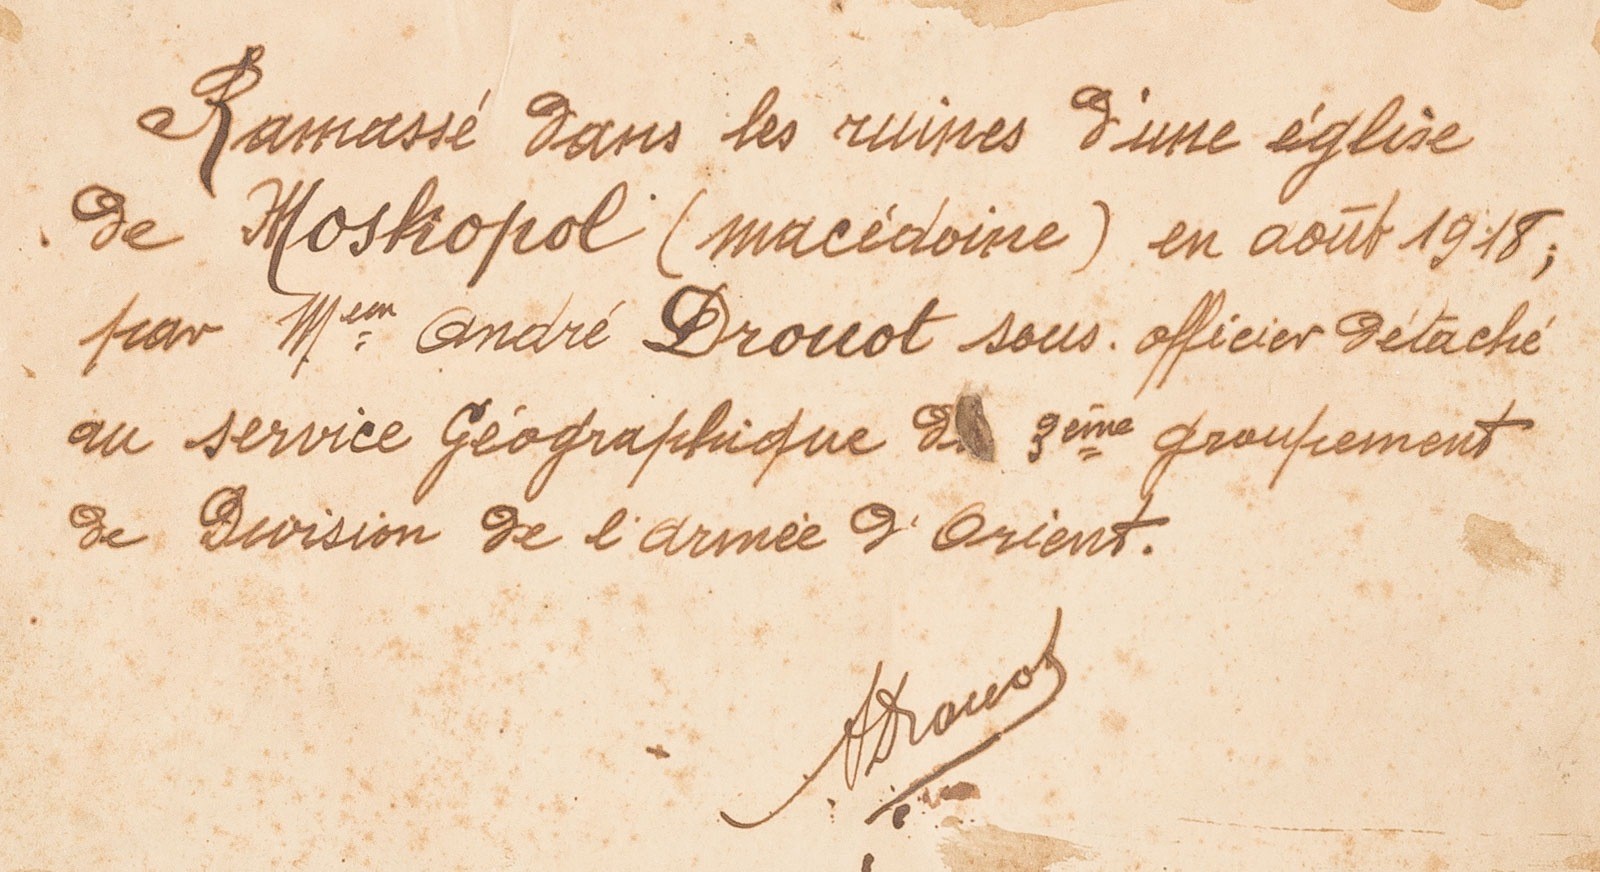 Ramassé dans les ruines d'une église
de Moskopol (macédoine) en août 1918;
par M André Drouot sous. officier détaché
au service Géographique 3ème groupement
de Division de l'armée d'Orient.
ADrouot